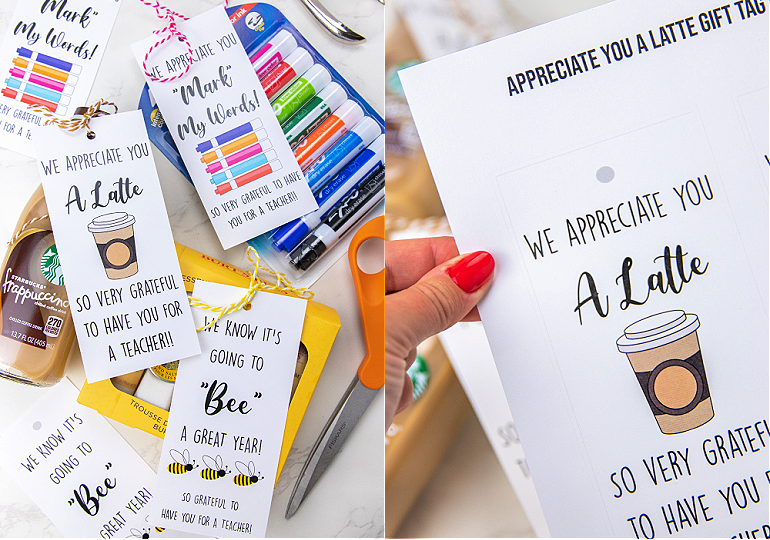 "Mark"
My Words!
SO VERY GRATEFUL
YOU FOR A
WE APPRECIATE YOU
"Mark"
My Words!
SO VERY GRATEFUL TO HAVE
YOU FOR A TEACHER!!
WE APPRECIATE YOU
A Latte
SO VERY GRATEFUL
TO HAVE YOU FOR
A TEACHER!!
STARBUCKS
frappuccino
CHILLED COFFEE DRINK
270
13.7 FL OZ (405
WE KNOW IT'S
GOING TO
"Bee"
A GREAT YEAR!
SO GRATEFUL TO
HAVE YOU FOR A TEACHER!
TROUSSE
WE KNOW IT'S
GOING TO
"Bee"
GREAT YEAR!
FISKARS
APPRECIATE YOU A LATTE GIFT TAG
WE APPRECIATE YOU
A Latte
SO VERY GRATEFU
TO HAVE YOU F